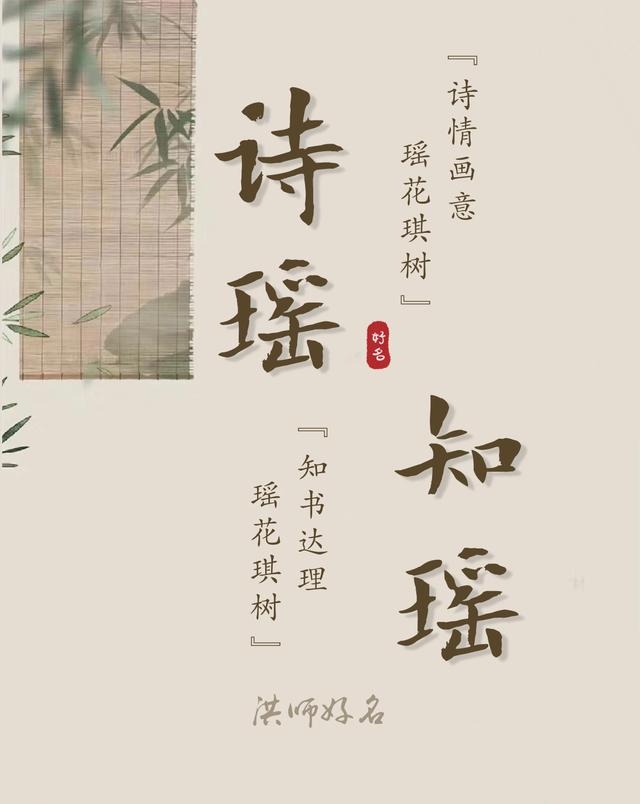 诗瑶
『诗情画意
瑶花琪树』
好名
知瑶
『知书达理
瑶花琪树』
洪师好名